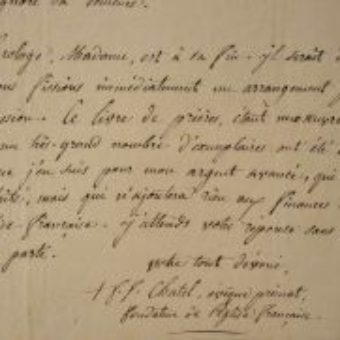 Madame, est à sa fin. il serait
fissions immédiatement un arrangement
Le livre de prières, étant
très-grand nombre d'exemplaires ont été
que j'en suis pour mon argent avancé, qui
mais qui n'ajoutera rien aux finances
française. j'attends votre réponse sans
part.
votre tout dévoué,
+ f. f. Chatel, évêque primat,
fondateur de l'église française.